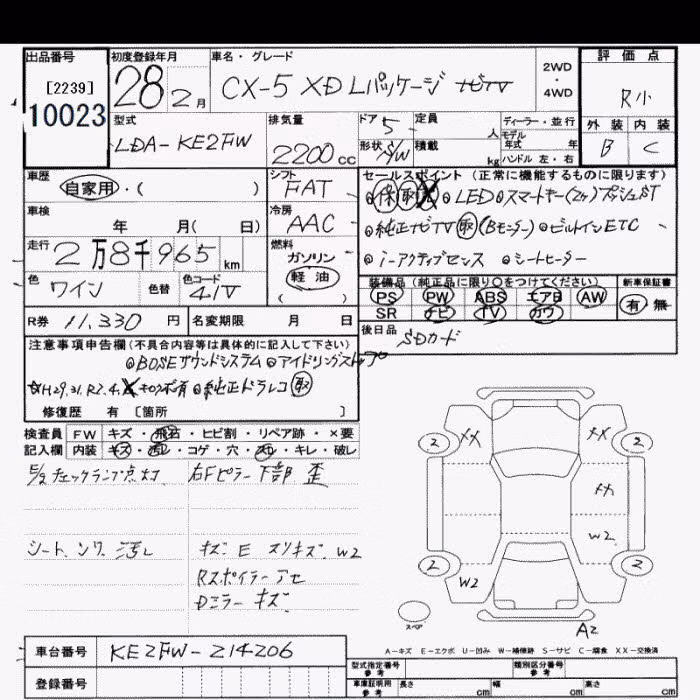 出品番号 初度登録年月 車名・グレード 評価点
[2239] 10023 28 2月 CX-5 XD Lパッケージ ナビTV 2WD・4WD R小
型式 排気量 ドア 5 定員 人 ディーラー・並行 外装 内装
LDA-KE2FW 2200cc 形状 S/W 積載 kg モデル年式 年 ハンドル 左・右 B C
車歴 シフト セールスポイント (正常に機能するものに限ります)
自家用・( ) FAT 保 取 ◎LED◎スマートキー(2ヶ)プッシュST
車検 冷房 ◎純正ナビTV 取 (Bモニター)◎ビルトインETC
年 月( 日) AAC ◎i-アクティブセンス ◎シートヒーター
走行 2万8千965km 燃料 ガソリン 軽油 ( )
装備品 (純正品に限り○をつけてください) 新車保証書
色 ワイン 色替 色コード 41V PS PW ABS エアB AW 有 無
SR ナビ TV カワ
R券 11,330円 名変期限 月 日 後日品 SDカード
注意事項申告欄(不具合内容等は具体的に記入して下さい)
◎BOSEサウンドシステム ◎アイドリングストップ
☆H29.31.R2.4. キロク簿有 ◎純正ドラレコ 取
修復歴 有 [箇所 ]
検査員 FW キズ・飛石・ヒビ割・リペア跡・×要
記入欄 内装 キズ・汚レ・コゲ・穴・スレ・キレ・破レ
E/gチェックランプ点灯 右Fピラー下部 歪
シート、ンワ、汚レ キズ E スリキズ W2
Rスポイラーアセ
Dミラーキズ
2 XX XX 2
W2
2 W2 2
スペア A2
A-キズ E-エクボ U-凹み W-補修跡 S-サビ C-腐食 XX-交換済
車台番号 KE2FW-214206
登録番号 型式指定番号 参考 類別区分番号 参考
車庫証明用 参考 長さ cm 幅 cm 高さ cm